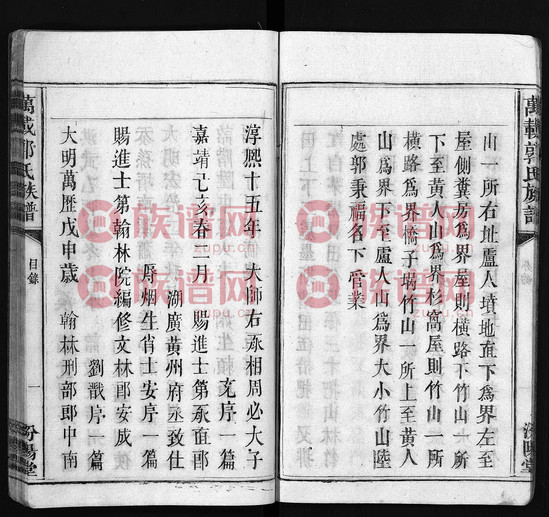 萬載郭氏族譜
山一所右址盧人墳地直下爲界左至
屋側糞房爲界屋則橫路下竹山一所
下至黄人山爲界杉窩屋則竹山一所
橫路爲界橋子塆竹山一所上至黄人
山爲界下至盧人山爲界大小竹山陸
處郭秉福名下管業
淳熙十五年 大師右丞相周必大子
充序一篇
嘉靖己亥春二月 賜進士第承直郎
湖廣黄州府丞致仕
厚烟生肖士安序一篇
賜進士第翰林院編修文林郎安成
劉戩序一篇
大明萬歷戊申歲 翰林刑部郎中南
萬載郭氏族譜
目錄
一
汾陽堂
族谱网
zupu.cn